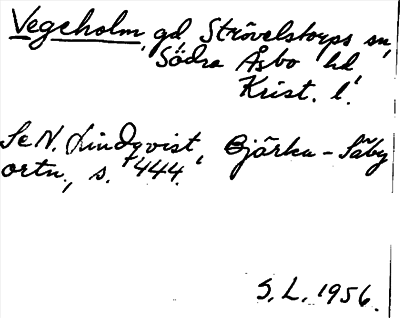 Vegeholm, gd, Strövelstorps sn,
Södra Åsbo hd,
Krist. l.
Se N. Lindqvist, Bjärka-Säby
ortn., s. 444.
S. L. 1956.